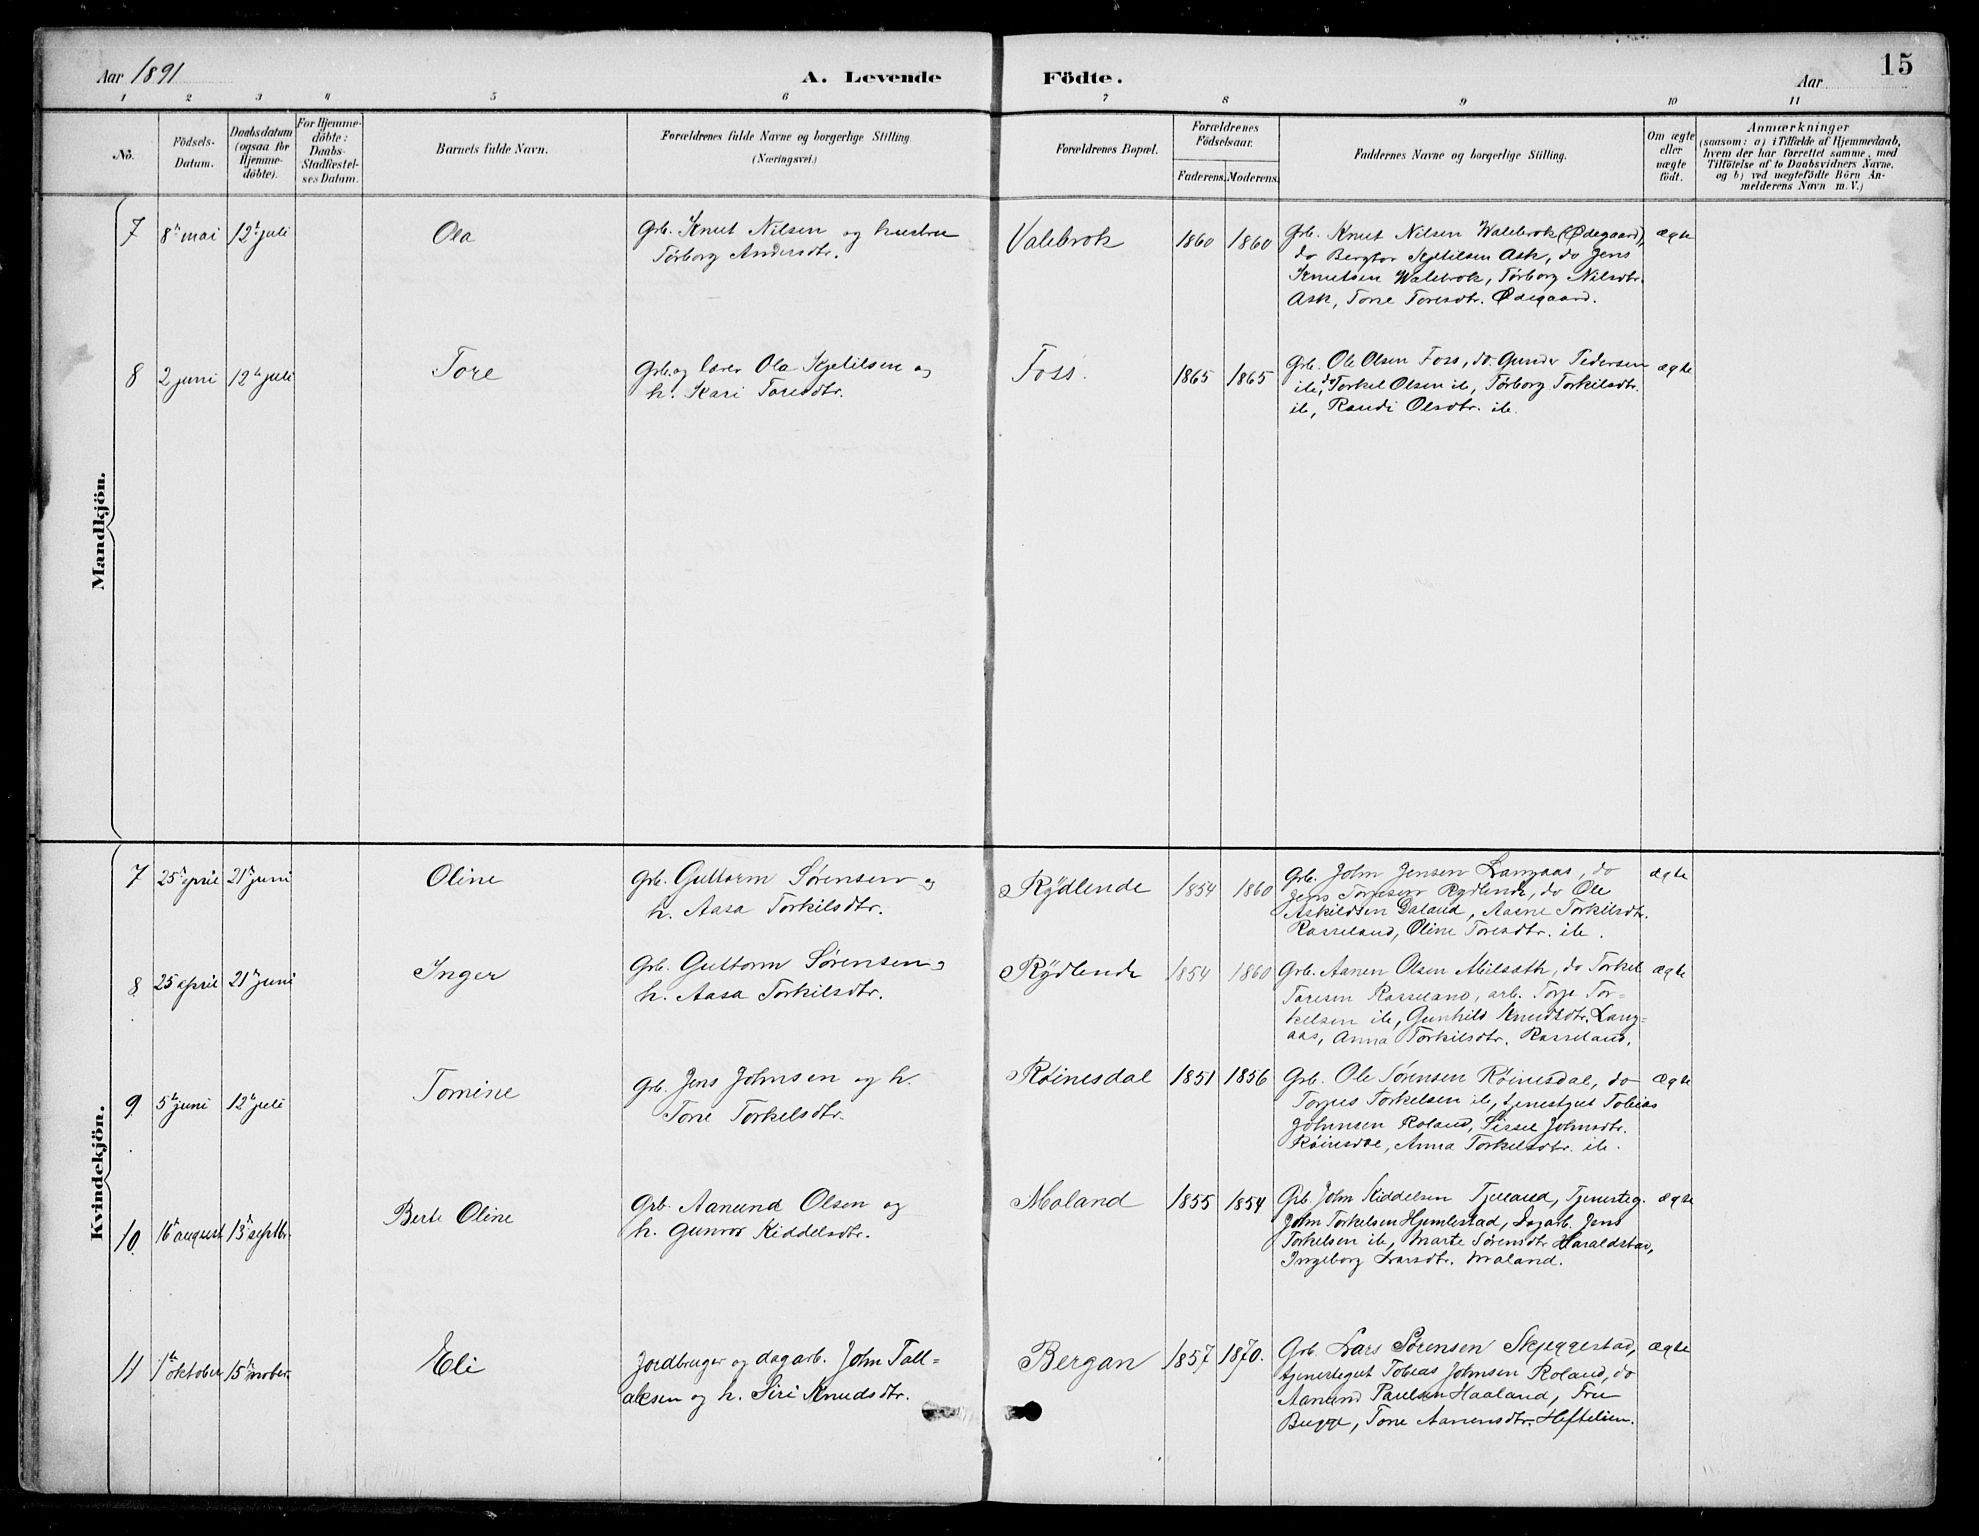 15
Aar 1891 A. Levende Födte. Aar
1 2 3 4 5 6 7 8 9 10 11
No.
Födsels-
Datum.
Daabsdatum
(ogsaa for
Hjemme-
döbte).
For Hjemme-
döbte:
Daabs-
Stadfæstel-
ses Datum.
Barnets fulde Navn.
Forældrenes fulde Navne og borgerlige Stilling.
(Næringsvei.)
Forældrenes Bopæl.
Forældrenes
Födselsaar.
Faderens. Moderens.
Faddernes Navne og borgerlige Stilling.
Om ægte
eller
uægte
födt.
Anmærkninger
(saasom: a) i Tilfælde af Hjemmedaab,
hvem der har forrettet samme, med
Tilföielse af to Daabsvidners Navne.
og b) ved uægtefödte Börn An-
melderens Navn m. V.)
Mandkjön.
7 8de mai 12te juli Ola
Grb. Knut Nilsen og hustru
Tørborg Andersdtr.
Valebrok 1860 1860
Grb. Knut Nilsen Walebrok (Ødegaard),
do Bergtor Kjetilsen Ask, do Jens
Knutsen Walebrok, Tørborg Nilsdtr.
Ask, Tone Toresdtr. Ødegaard.
ægte
8 2 juni 12te juli Tore
Grb. og lærer Ola Kjetilsen og
h. Kari Toresdtr.
Foss. 1865 1865
Grb. Ole Olsen Foss, do. Gunder Pedersen
ib, do Torkel Olsen ib, Tørborg Torkilsdtr.
ib, Randi Olsdtr. ib.
ægte
Kvindekjön.
7 25de april 21de juni Oline
Grb. Guttorm Sørensen og
h. Aasa Torkilsdtr.
Rydlende 1854 1860
Grb. John Jensen Langaas, do
Jens Torjesen Rydlende, do Ole
Askildsen Daland, Aasne Torkilsdtr.
Rosseland, Oline Toresdtr. ib.
ægte
8 25 april 21de juni Inger
Grb. Guttorm Sørensen og
h. Aasa Torkilsdtr.
Rydlende 1854 1860
Grb. Aanen Olsen Milsath, do Torkel
Toresen Rosseland, arb. Torje Tor-
kelsen ib, Gunhild Knudsdtr. Lang-
aas, Anna Torkilsdtr. Rosseland.
ægte
9 5te juni 12te juli Tomine
Grb. Jens Johnsen og h.
Tone Torkelsdtr.
Røinesdal 1851 1856
Grb. Ole Sørensen Røinesdal, do
Torjus Torkelsen ib, tjenestgut Tobias
Johnsen Roland, Sissel Johnsdtr.
Røinesdal, Anna Torkelsdtr. ib.
ægte
10 16de august 13de septbr. Berte Oline
Grb. Aanund Olsen og
h. Gunvor Kiddelsdtr.
Moland 1855 1854
Grb. John Kiddelsen Tjelland, Tjenesteg.
John Torkelsen Hjemlestad, Dagarb. Jens
Torkelsen ib, Marte Sørensdtr Haraldstad,
Ingeborg Larsdtr. Moland.
ægte
11 1te oktober 15de novbr. Eli
Jordbruger og dagarb. John Tall-
aksen og h. Siri Knudsdtr.
Bergan 1857 1870.
Grb Lars Sørensen Skjeggestad,
tjenestegut Tobias Johnsen Roland, do
Aanund Paulsen Haaland, Fru
Bugge, Tone Aanensdtr. Heftelien.
ægte